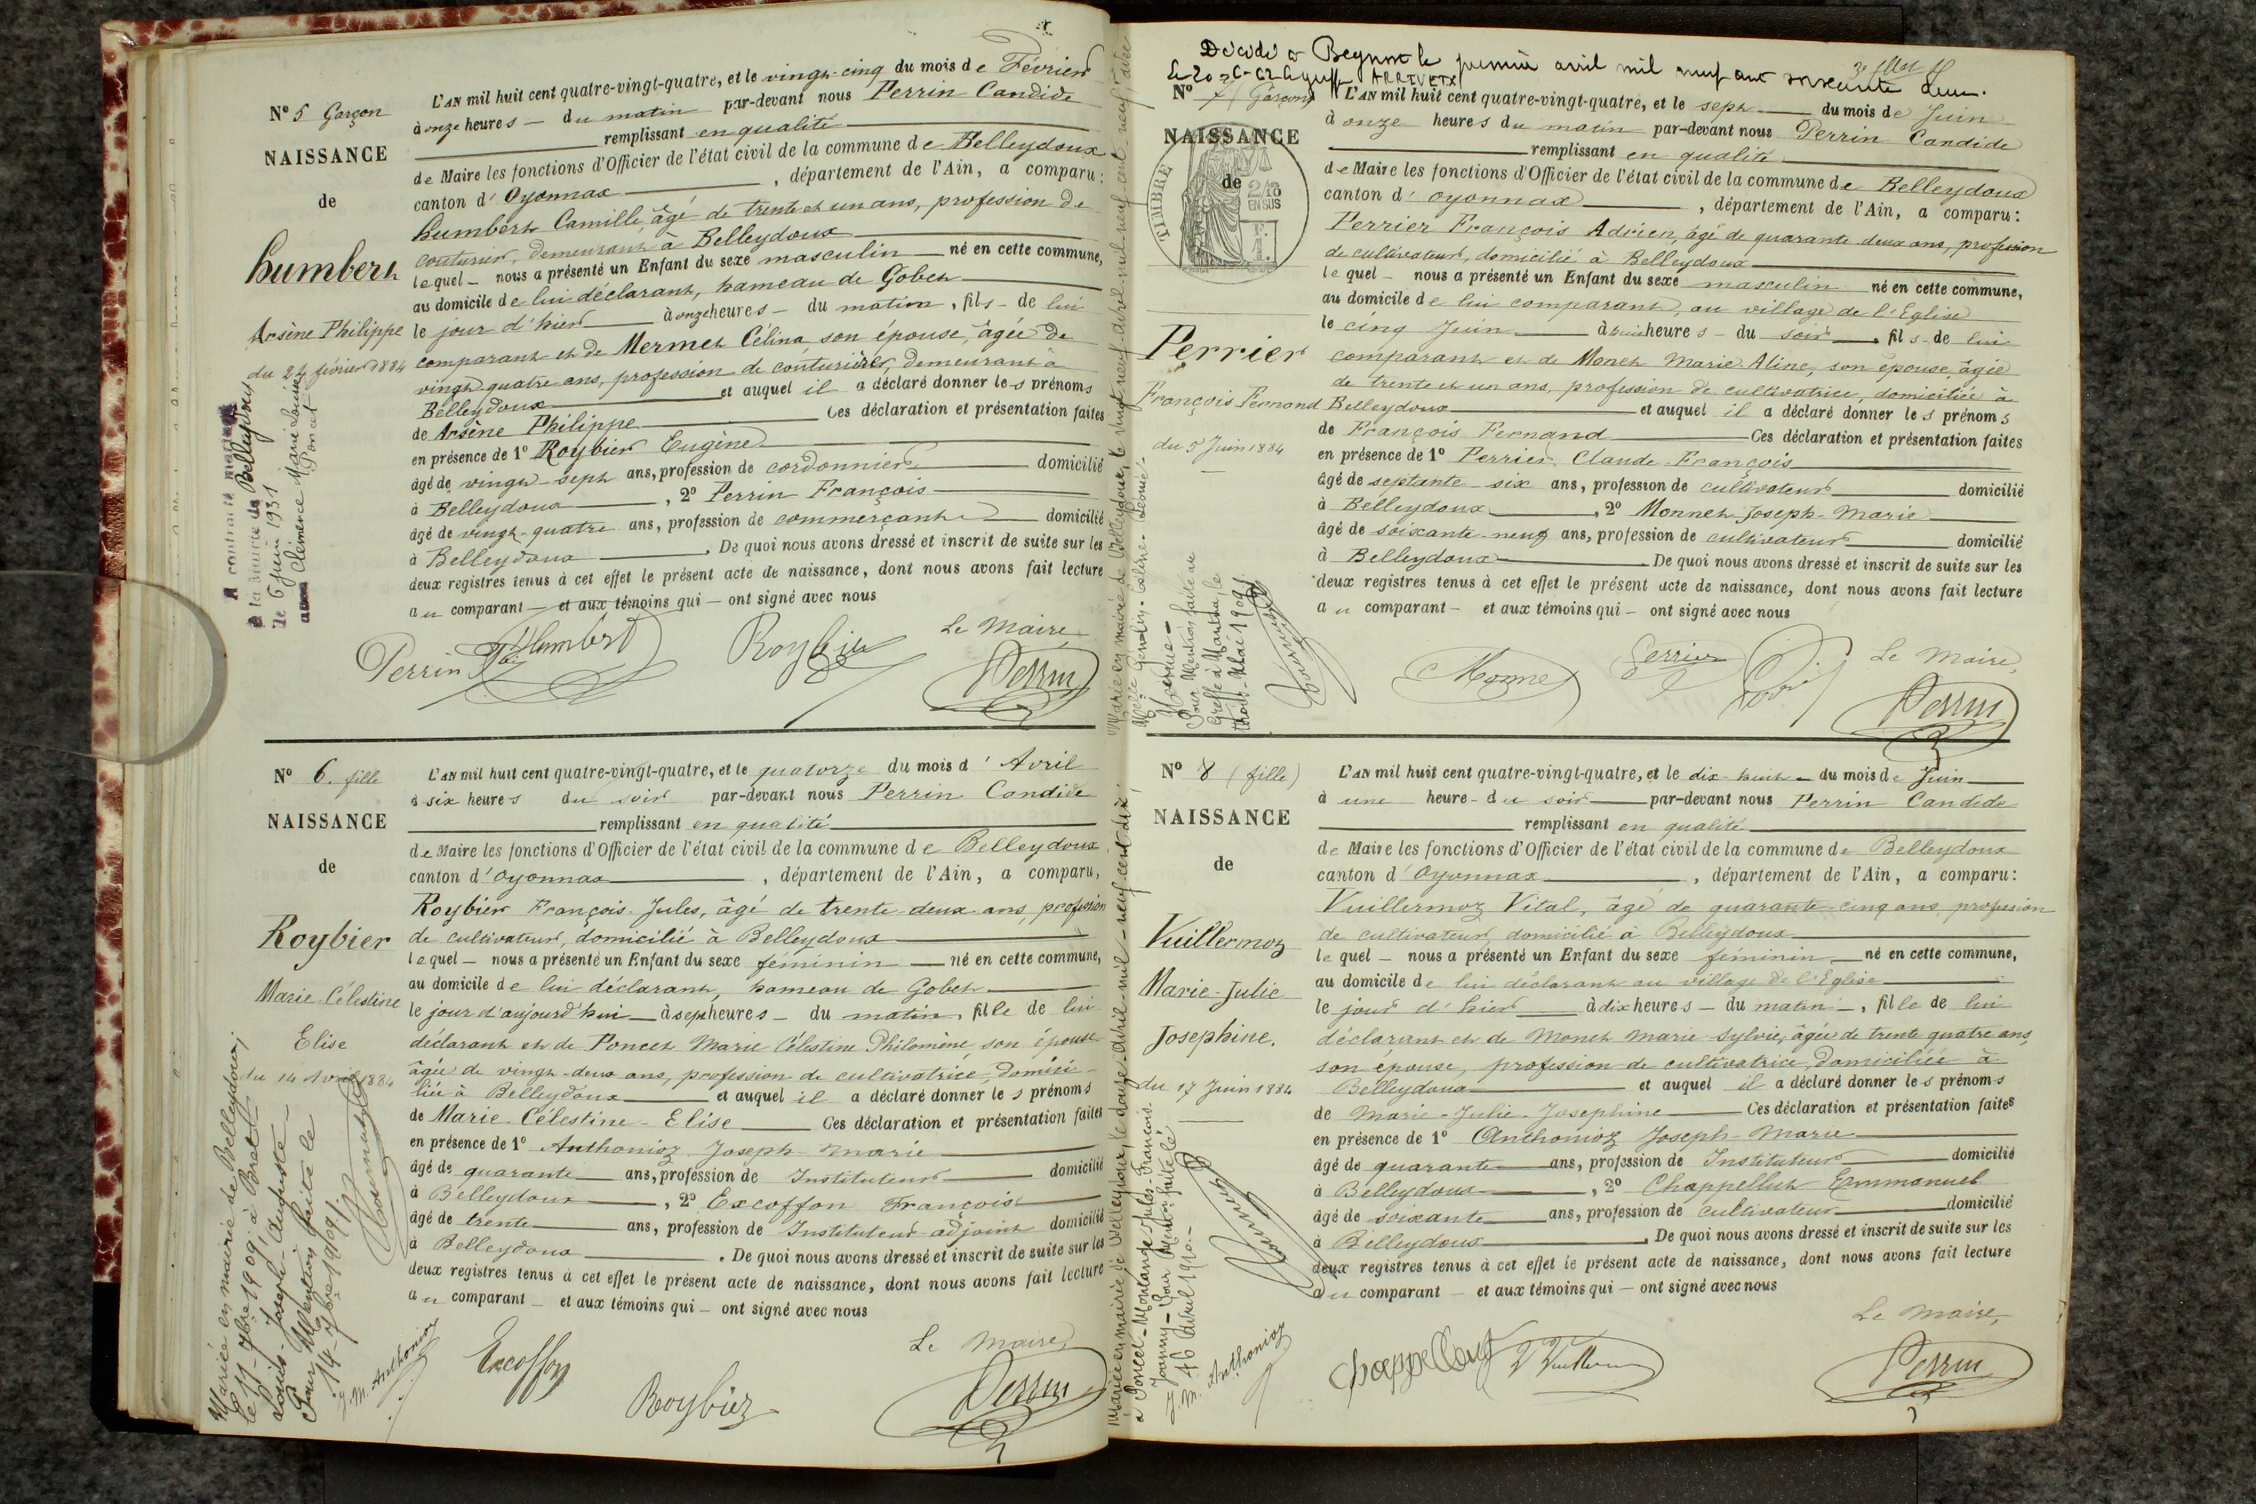 N° 5 Garçon
NAISSANCE
de
humbert
Arsène Philippe
du 24 février 1884
A contracté mariage
à la mairie de Belleydoux
le 6 juin 1931
avec Clémence Marie Louise
Poncet
L'AN mil huit cent quatre-vingt-quatre, et le vingt-cinq du mois de Février
à onze heures du matin par-devant nous Perrin Candide
remplissant en qualité
de Maire les fonctions d'Officier de l'état civil de la commune de Belleydoux
canton d'Oyonnax, département de l'Ain, a comparu:
humbert Camille, âgé de trente et un ans, profession de
couturier, demeurant à Belleydoux
lequel nous a présenté un Enfant du sexe masculin né en cette commune,
au domicile de lui déclarant, hameau de Gobet
le jour d'hier à onze heures du matin, fils de lui
comparant et de Mermet Célina son épouse, âgée de
vingt quatre ans, profession de couturière, demeurant à
Belleydoux et auquel il a déclaré donner les prénoms
de Arsène Philippe Ces déclaration et présentation faites
en présence de 1° Roybier Eugène
âgé de vingt-sept ans, profession de cordonnier domicilié
à Belleydoux, 2° Perrin François
âgé de vingt-quatre ans, profession de commerçant domicilié
à Belleydoux. De quoi nous avons dressé et inscrit de suite sur les
deux registres tenus à cet effet le présent acte de naissance, dont nous avons fait lecture
au comparant et aux témoins qui ont signé avec nous
Le Maire,
Perrin Humbert Roybier Perrin
N° 6. fille
NAISSANCE
de
Roybier
Marie Célestine
Elise
du 14 Avril 1884
Mariée en mairie de Belleydoux,
le 11 7bre 1909, à
Louis-Joseph-Auguste
Pour Mention faite le
14 7bre 1909
J. M. Anthonioz
L'AN mil huit cent quatre-vingt-quatre, et le quatorze du mois d'Avril
à six heures du soir par-devant nous Perrin Candide
remplissant en qualité
de Maire les fonctions d'Officier de l'état civil de la commune de Belleydoux
canton d'Oyonnax, département de l'Ain, a comparu,
Roybier François Jules, âgé de trente-deux ans, profession
de cultivateur, domicilié à Belleydoux
lequel nous a présenté un Enfant du sexe féminin né en cette commune,
au domicile de lui déclarant, hameau de Gobet
le jour d'aujourd'hui à sept heures du matin, fille de lui
déclarant et de Poncet Marie Célestine Philomène, son épouse
âgée de vingt-deux ans, profession de cultivatrice, domici-
liée à Belleydoux et auquel il a déclaré donner les prénoms
de Marie-Célestine-Elise Ces déclaration et présentation faites
en présence de 1° Anthonioz Joseph-Marie
âgé de quarante ans, profession de Instituteur domicilié
à Belleydoux, 2° Excoffon François
âgé de trente ans, profession de Instituteur adjoint domicilié
à Belleydoux. De quoi nous avons dressé et inscrit de suite sur les
deux registres tenus à cet effet le présent acte de naissance, dont nous avons fait lecture
au comparant et aux témoins qui ont signé avec nous
Le Maire,
Excoffon Roybier Perrin
Décédé à Beynost le premier avril mil neuf cent soixante deux.
N° 7 (Garçon)
NAISSANCE
de
TIMBRE
2/10
EN SUS
Perrier
François Fernand
du 5 Juin 1884
Marié en mairie de Belleydoux, le vingt-neuf avril mil neuf cent neuf, avec
Pour Mention faite au
Greffe à Nantua, le
1909
L'AN mil huit cent quatre-vingt-quatre, et le sept du mois de Juin
à onze heures du matin par-devant nous Perrin Candide
remplissant en qualité
de Maire les fonctions d'Officier de l'état civil de la commune de Belleydoux
canton d'oyonnax, département de l'Ain, a comparu:
Perrier François Adrien, âgé de quarante deux ans, profession
de cultivateur, domicilié à Belleydoux
lequel nous a présenté un Enfant du sexe masculin né en cette commune,
au domicile de lui comparant, au village de l'Eglise
le cinq Juin à heures du soir fils de lui
comparant et de Monet Marie Aline, son épouse, âgée
de trente et un ans, profession de cultivatrice, domiciliée à
Belleydoux et auquel il a déclaré donner les prénoms
de François Fernand Ces déclaration et présentation faites
en présence de 1° Perrier Claude François
âgé de septante-six ans, profession de cultivateur domicilié
à Belleydoux, 2° Monnet Joseph-Marie
âgé de soixante-neuf ans, profession de cultivateur domicilié
à Belleydoux. De quoi nous avons dressé et inscrit de suite sur les
deux registres tenus à cet effet le présent acte de naissance, dont nous avons fait lecture
au comparant et aux témoins qui ont signé avec nous
Le Maire,
Monnet Perrier Perrin
N° 8 (fille)
NAISSANCE
de
Vuillermoz
Marie-Julie
Josephine.
du 17 Juin 1884
Mariée en mairie de Belleydoux, le douze avril mil neuf cent dix
à Poncet-Montange Jules-François
Joanny - Pour Mention faite le
16 Avril 1910
J. M. Anthonioz
L'AN mil huit cent quatre-vingt-quatre, et le dix-huit du mois de Juin
à une heure du soir par-devant nous Perrin Candide
remplissant en qualité
de Maire les fonctions d'Officier de l'état civil de la commune de Belleydoux
canton d'Oyonnax, département de l'Ain, a comparu:
Vuillermoz Vital, âgé de quarante-cinq ans, profession
de cultivateur, domicilié à Belleydoux
lequel nous a présenté un Enfant du sexe féminin né en cette commune,
au domicile de lui déclarant au village de l'Eglise
le jour d'hier à dix heures du matin, fille de lui
déclarant et de Monet Marie-Sylvie, âgée de trente quatre ans,
son épouse, profession de cultivatrice, domiciliée à
Belleydoux et auquel il a déclaré donner les prénoms
de Marie-Julie-Josephine Ces déclaration et présentation faites
en présence de 1° Anthonioz Joseph-Marie
âgé de quarante ans, profession de Instituteur domicilié
à Belleydoux, 2° Chappellut Emmanuel
âgé de soixante ans, profession de cultivateur domicilié
à Belleydoux. De quoi nous avons dressé et inscrit de suite sur les
deux registres tenus à cet effet le présent acte de naissance, dont nous avons fait lecture
au comparant et aux témoins qui ont signé avec nous
Le Maire,
Perrin